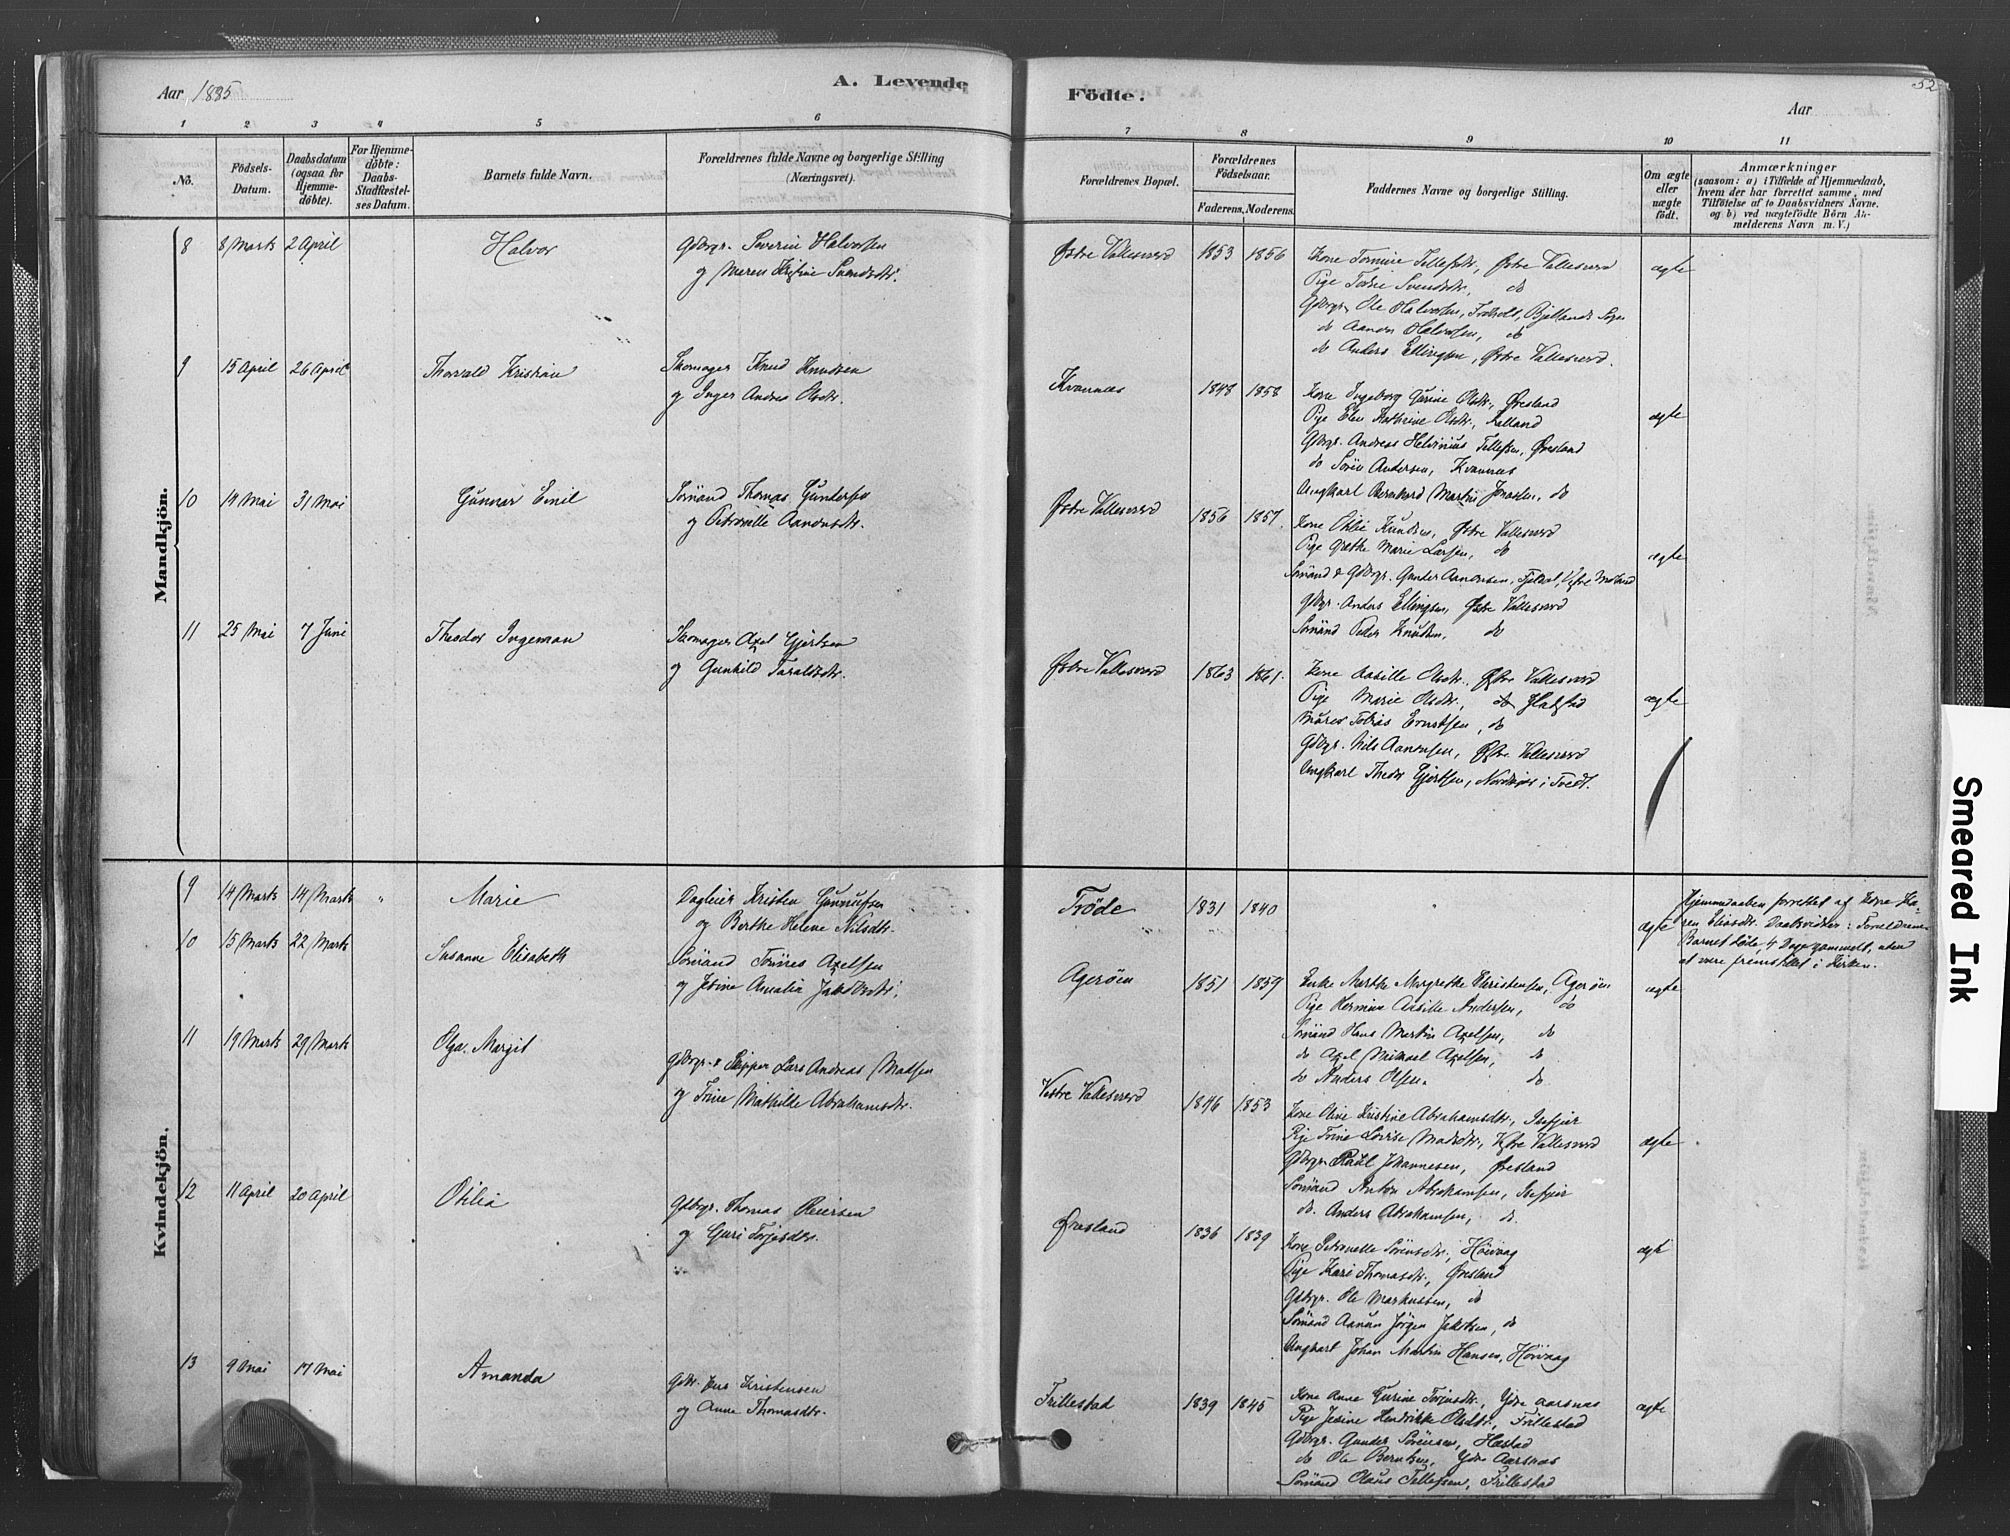 Aar 1885
A. Levende
Födte.
Aar
52
1 2 3 4 5 6 7 8 9 10 11
No.
Födsels-
Datum.
Daabsdatum
(ogsaa for
Hjemme-
döbte).
For Hjemme-
döbte:
Daabs-
Stadfæstel-
ses Datum.
Barnets fulde Navn.
Forældrenes fulde Navne og borgerlige Stilling
(Næringsvei).
Forældrenes Bopæl.
Forældrenes
Födselsaar.
Faderens. Moderens.
Faddernes Navne og borgerlige Stilling.
Om ægte
eller
uægte
födt.
Anmærkninger
(saasom: a) i Tilfælde af Hjemmedaab,
hvem der har forrettet samme, med
Tilföielse af to Daabsvidners Navne.
og b) ved uægtefödte Börn An-
melderens Navn m. V.)
Mandkjön.
8 8 Marts 2 April Halvor
Gdbrgr. Severin Halvorsen
og Maren Kristine Svendsdtr.
Østre Vallesverd 1853 1856
Kone Tomine Tellefsdtr., Østre Vallesverd
Pige Svendsdtr., do
Gdbrgr. Ole Halvorsen, Bjellands Sogn
do Aanon Halvorsen, do
do Anders Ellingsen, Østre Vallesverd.
ægte
9 15 April 26 April Thorvald Kristian
Skomager Knud Knudsen
og Inger Andrea Olsdtr.
Kvannes 1848 1858
Kone Ingeborg Gurine Olsdtr., Øresland
Pige Elen Kathrine Olsdtr.,
Gdbrgr. Andreas Helvinius Tellefsen, Øresland
do Sören Andersen, Kvannes
Ungkarl Bernhard Martin Jonassen, do
ægte
10 14 Mai 31 Mai Gunnar Emil
Sømand Thomas Gundersen
og Petronille Aanonsdtr.
Østre Vallesverd 1856 1857.
Kone Knudsen, Østre Vallesverd
Pige Grethe Marie Larsen, do
Sømand & Gdbrgr. Gunder Aanonsen,
Gdbgr. Anders Ellingsen, Østre Vallesverd
Sømand Peder Knudsen, do
ægte
11 25 Mai 7 Juni Theodor Ingeman
Skomager Axel Gjertsen
og Gunhild Taraldsdtr.
Østre Vallesverd 1863 1861.
Kone Olsdtr., Østre Vallesverd
Pige Marie Olsdtr.,
Tobias Ernstsen, do
Gdbrgr. Nils Aanonsen, Østre Vallesverd
Ungkarl Theodor Gjertsen, i Tvedt.
ægte
Kvindekjön.
9 14 Marts 14 Marts " Marie
Dagleier Kristen Gunnufsen
og Berthe Helene Nilsdtr.
Trøde 1831 1840
ægte
Hjemmedaaben forrettet af Kone Ka-
ren Eliasdtr. Daabsvidner: Forældrene.
Barnet døde 4 Dage gammelt, uden
at være fremstillet i Kirken.
10 15 Marts 22 Marts Susanne Elisabeth
Sømand Axelsen
og Jesine Amalia Jakobsdtr.
Agerøen 1851 1859
Enke Marthe Margrethe Christensen, Agerøen
Pige Hermine Andersen, do
Sømand Hans Martin Axelsen, do
do Axel Mikael Axelsen, do
do Anders Olsen. do
ægte
11 19 Marts 29 Marts Olga Margit
Gdbrgr. & Skipper Lars Andreas Madsen
og Trine Mathilde Abrahamsdtr.
Vestre Vallesverd 1846 1853
Kone Kristine Abrahamsdtr., Isefjær
Pige Trine Lovise Madsdtr., Vestre Vallesverd
Gdbrgr. Johannesen, Øresland
Sømand Anton Abrahamsen, Isefjær
do. Anders Abrahamsen, do.
ægte
12 11 April 20 April Otilia
Gdbrgr. Thomas Reiersen
og Guri Torjusdtr.
Øresland 1836 1839
Kone Petronelle Sørensdtr., Høivaag
Pige Kari Thomasdtr., Øresland
Gdbrgr. Ole Markussen, do
Sømand Aanon Jørgen Jakobsen, do
Ungkarl Johan Martin Hansen, Høivaag
ægte
13 9 Mai 17 Mai Amanda
Gdbr. Jens Kristensen
og Anne Thomasdtr.
Frillestad 1839 1845
Kone Anne Gurine Torjusdtr., Ydre Aarsnæs
Pige Jesine Hendrikke Olsdtr., Frillestad
Gdbrgr. Gunder Sørensen, Hæstad
do Ole Berntsen, Ydre Aarsnæs
Sømand Olaus Tellefsen, Frillestad
ægte
Smeared Ink